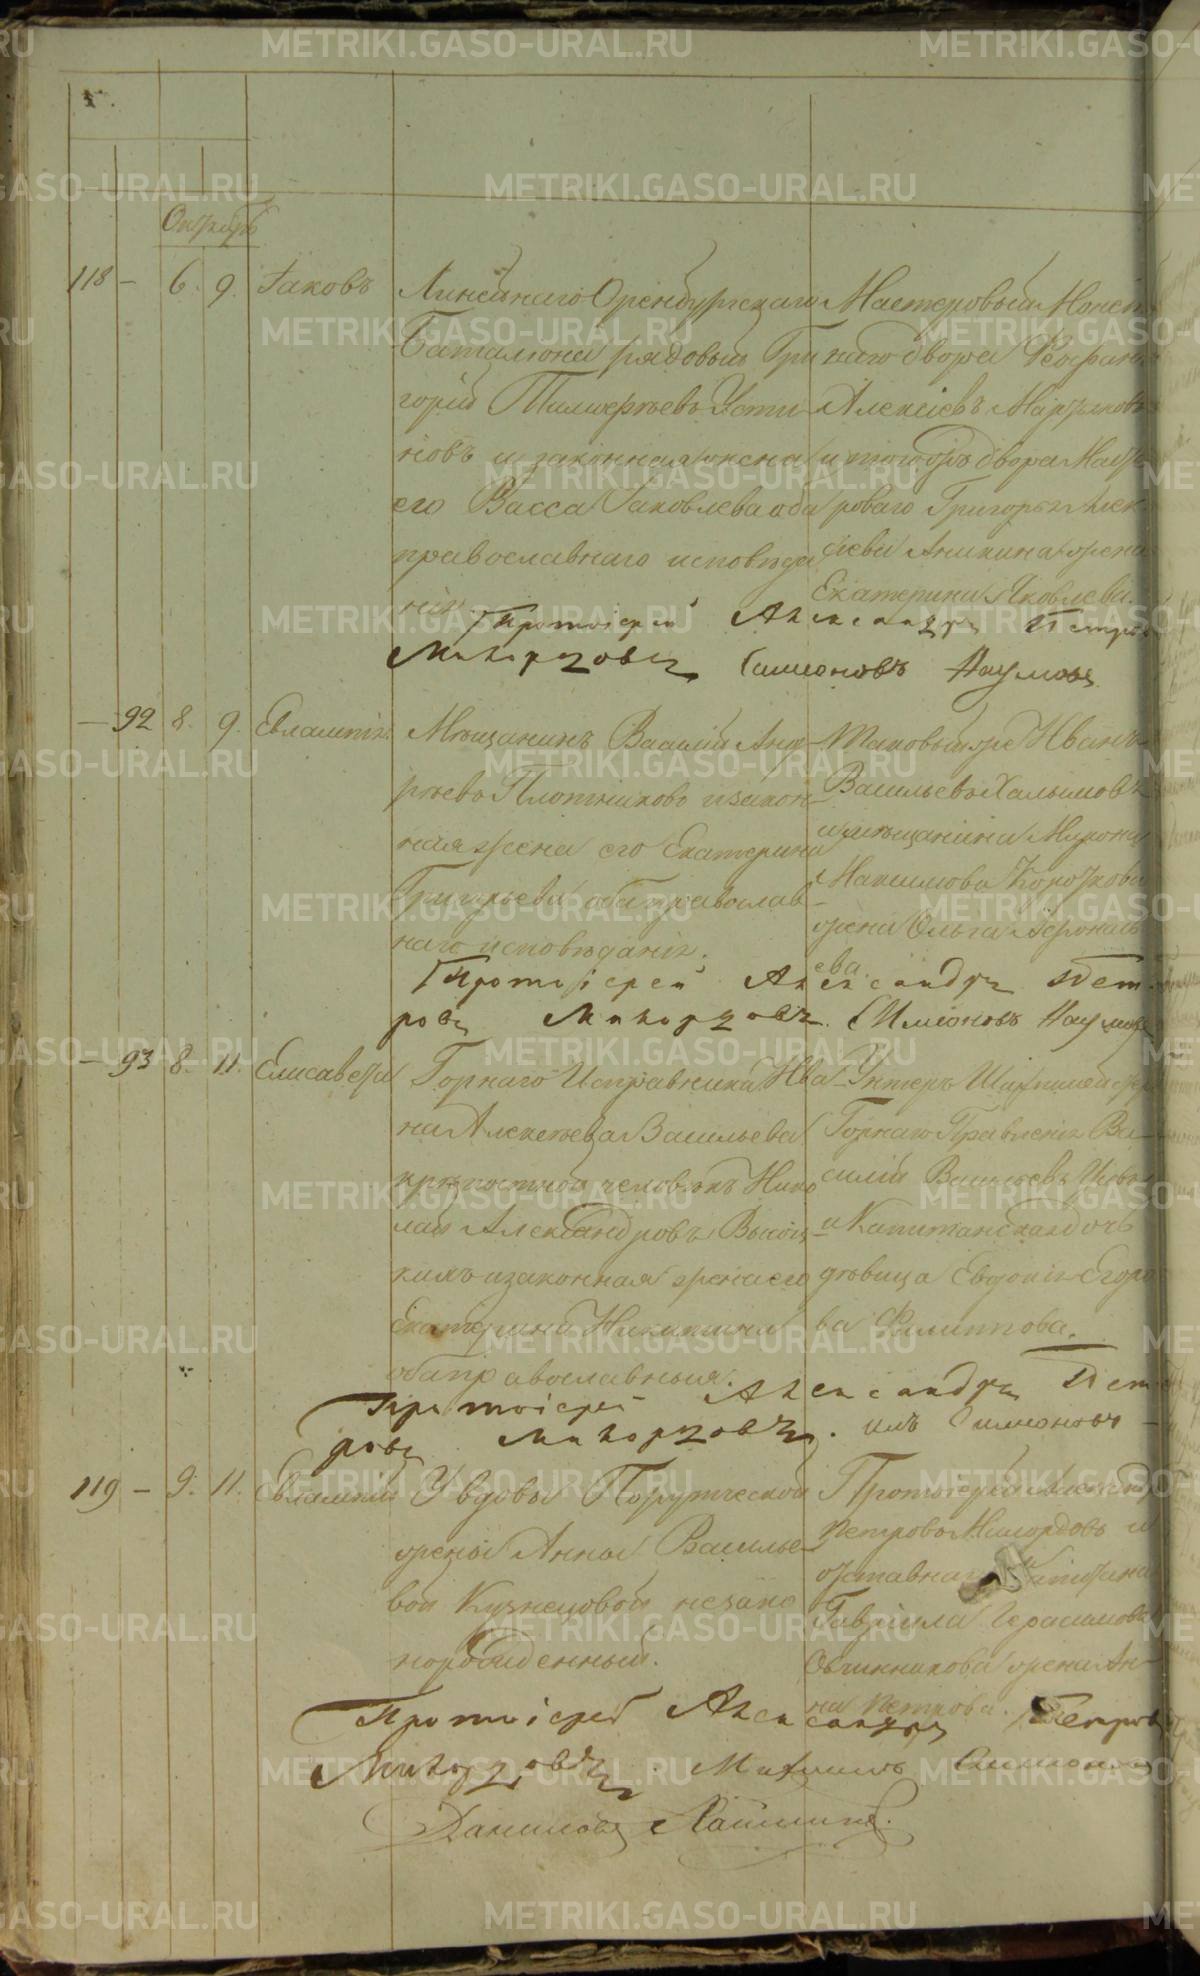 Октябрь
118 – 6. 9. Іаковъ
Линейнаго Оренбургскаго
Баталіона рядовый Гри
горій Тимофеевъ Усти
новъ и законная жена
его Васса Іаковлева оба
православнаго исповѣда
нія.
Мастеровый Монет
наго двора
Алексіевъ
и того жъ двора
роваго Григорья Алек
сіева Аникина жена
Екатерина Яковлева.
Протоіерей Александръ Петровъ
Милордовъ Симеоновъ Наумовъ
– 92 8. 9. Евлампія
Мѣщанинъ Василій Анд
реевъ Плотниковъ и закон
ная жена его Екатерина
Григорьева оба православ
наго исповѣданія.
Таковый же Иванъ
Васильевъ Халымовъ
и мѣщанина Мирона
Максимова Короткова
жена Ольга Афонась
ева.
Протоіерей Александръ Пет
ровъ Милордовъ. Симеоновъ Наумовъ
– 93 8. 11. Елисавета
Горнаго Исправника Ива
на Алексеева Васильева
крѣпостной человѣкъ Нико
лай Александровъ Высоц
кихъ и законная жена его
Екатерина Никитина
оба православныя.
Унтеръ Шихтмейстеръ
Горнаго Правленія Ва
силій Васильевъ
и Капитанская дочь
дѣвица Евдокія Егоро
ва Филиппова.
Протоіерей Александръ Пет
ровъ Милордовъ. Симеоновъ
119 – 9. 11. Евлампій
У вдовы Поручической
жены Анны Василье
вой Кузнецовой незако
норожденный.
Протоіерей Александръ
Петровъ Милордовъ и
отставнаго Капитана
Гавріила Герасимова
Овчинникова жена Ан
на Петрова.
Протоіерей Александръ Петровъ
Милордовъ. Симеоновъ
Даниловъ
METRIKI.GASO-URAL.RU